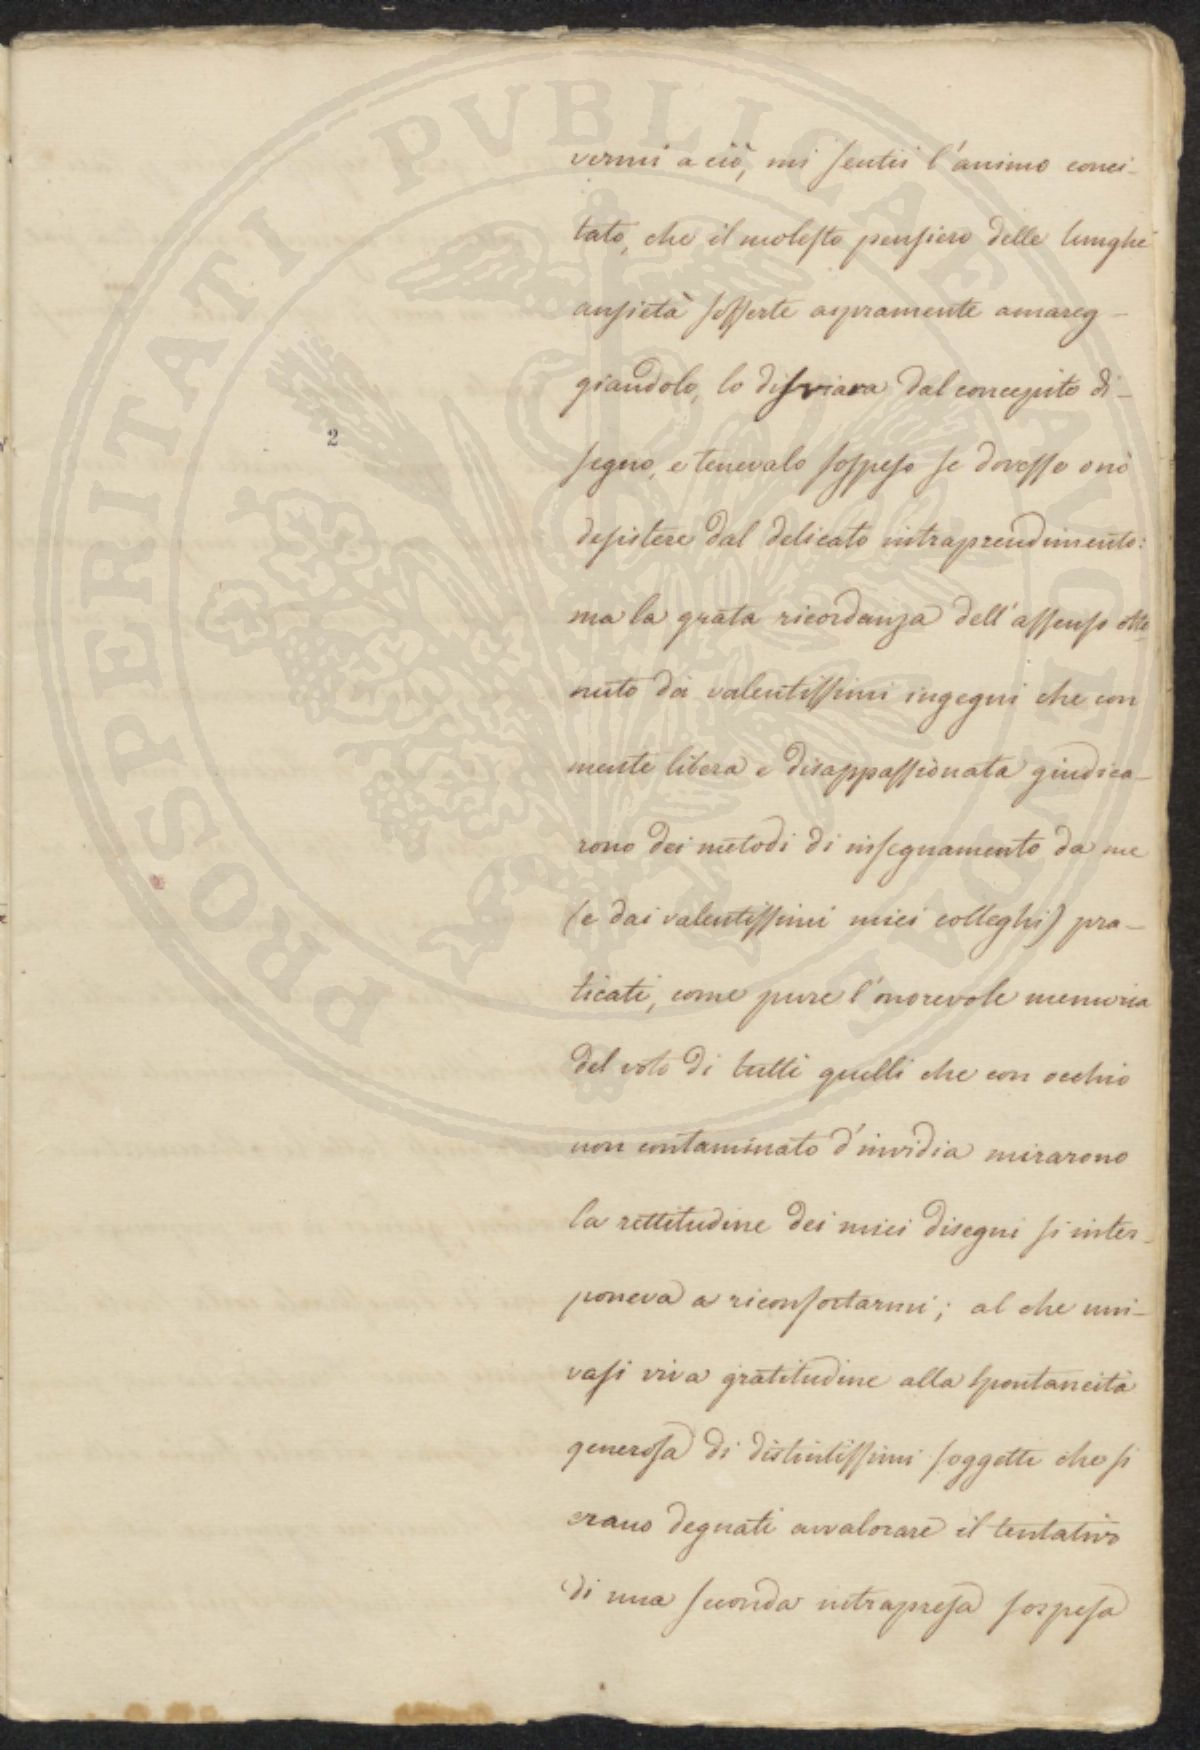 PROSPERITATI PVBLICAE AVGENDAE
2
vermi a ciò, mi sentii l'animo conci-
tato, che il molesto pensiero delle lunghe
ansietà sofferte aspramente amareg-
giandolo, lo disviava dal concepito di-
segno, e tenevalo sospeso se dovesse o nò
desistere dal delicato intraprendimento:
ma la grata ricordanza dell'assenso otte-
nuto da valentissimi ingegni che con
mente libera e disappassionata giudica-
rono dei metodi di insegnamento da me
(e dai valentissimi miei colleghi) pra-
ticati, come pure l'onorevole memoria
del voto di tutti quelli che con occhio
non contaminato d'invidia mirarono
la rettitudine dei miei disegni si inter-
poneva a riconfortarmi; al che uni-
vasi viva gratitudine alla spontaneità
generosa di distintissimi soggetti che si
erano degnati avvalorare il tentativo
di una seconda intrapresa sospesa